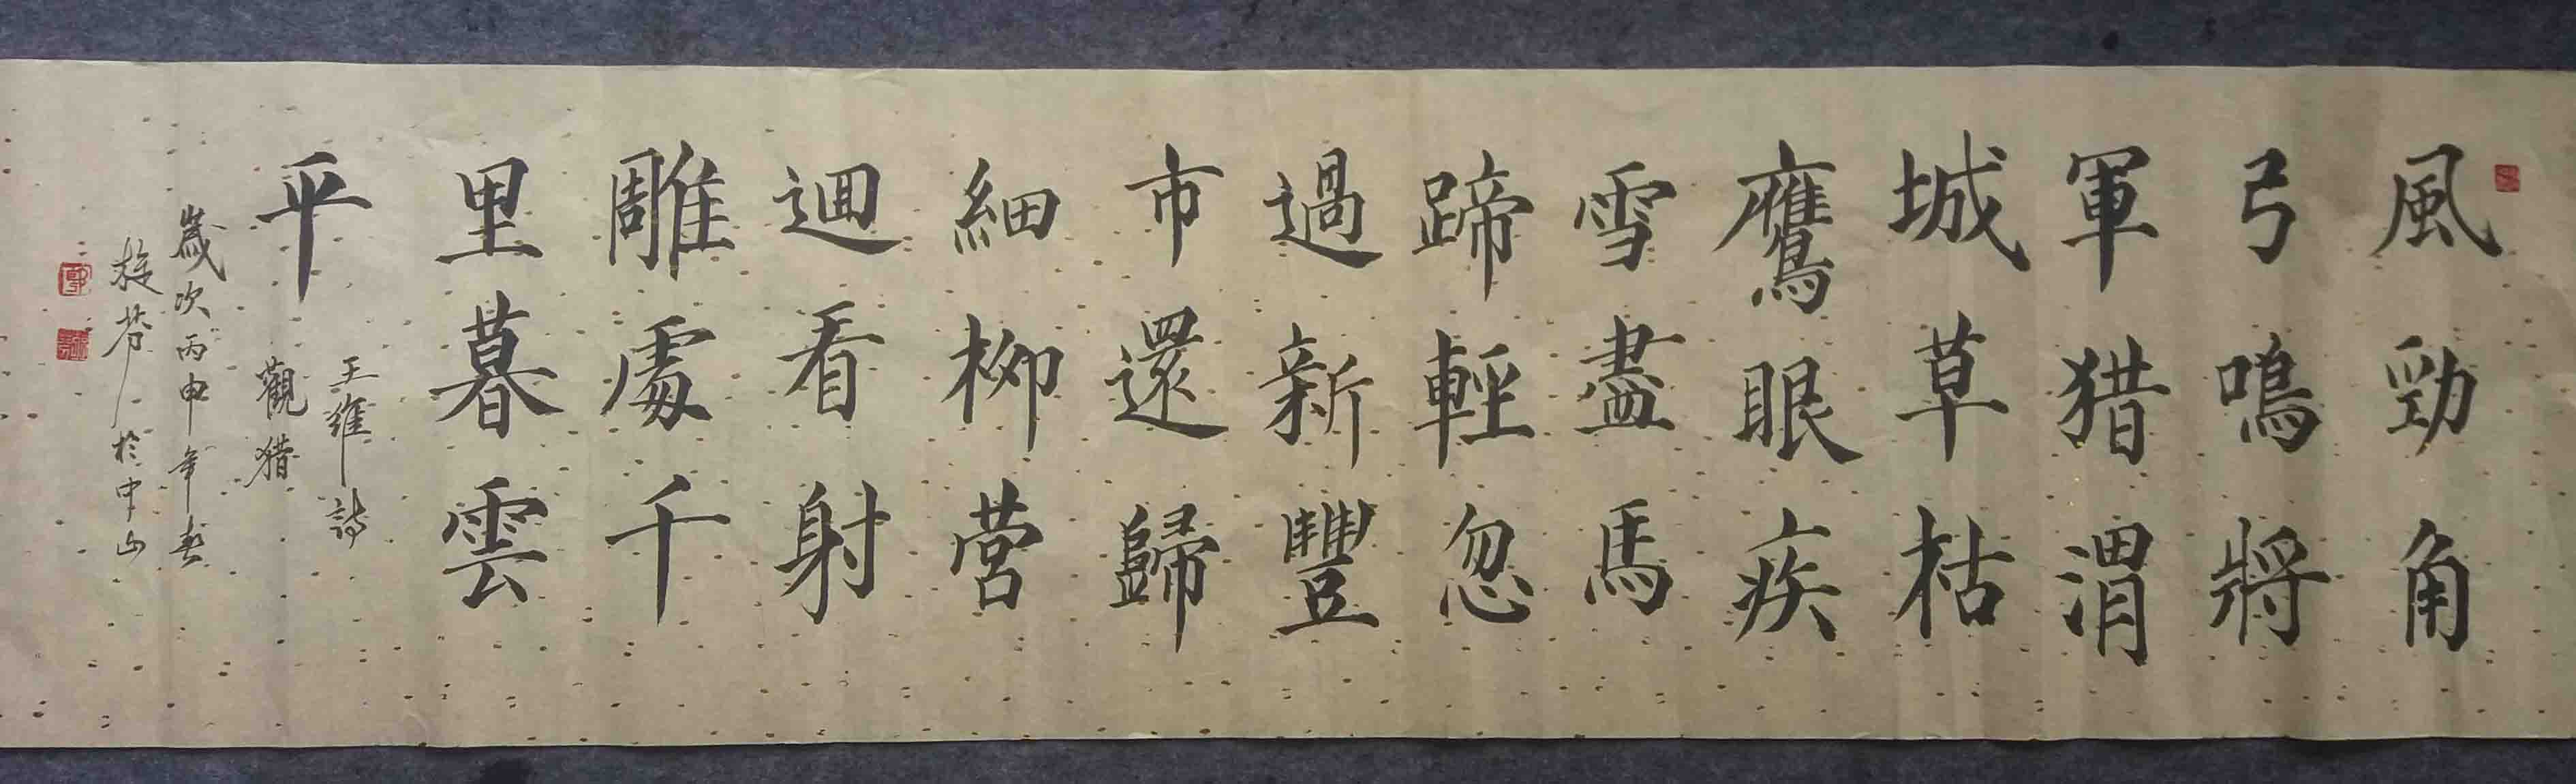 風勁角
弓鳴將
軍猎渭
城草枯
鷹眼疾
雪盡馬
蹄輕忽
過新豐
市還歸
細柳营
迴看射
雕處千
里暮雲
平
王維詩
觀猎
歲次丙申年春
於中山